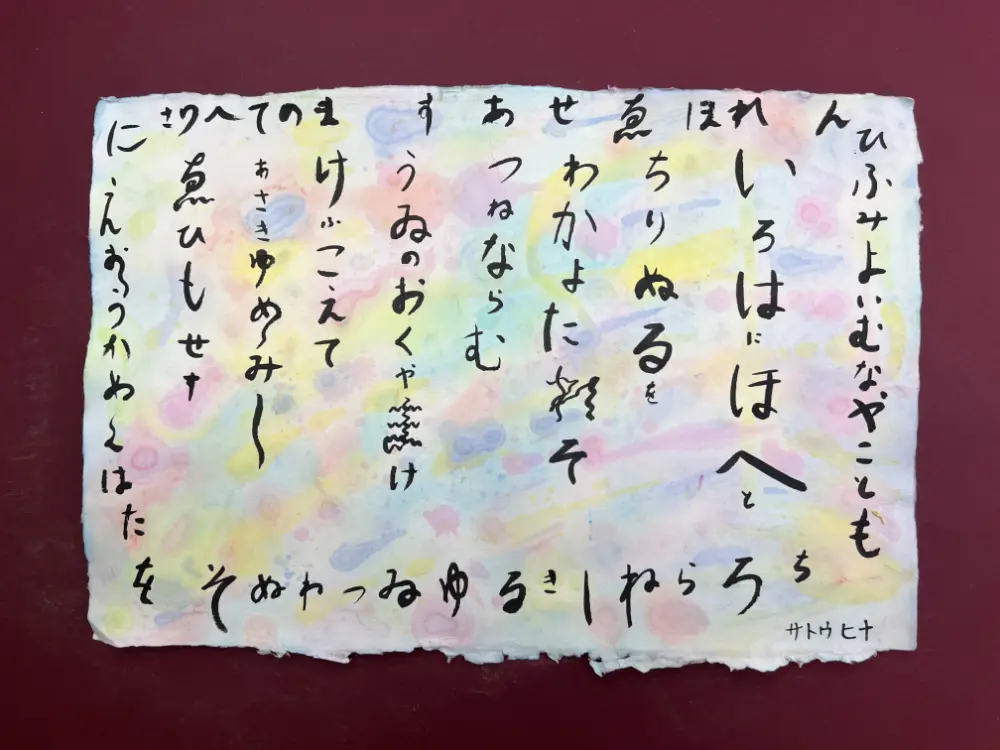 ひふみよいむなやことも
ちろらねしきるゆゐつわぬそを
たはくめかうおえに
さりへてのますあせゑほれん
いろはにほへと
ちりぬるを
わかよたそ
つねならむ
うゐのおくやけ
けふこえて
あさきゆめみし
ゑひもせす
サトウヒナ